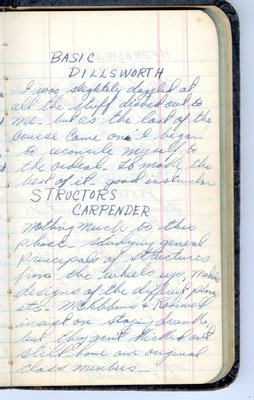 BASIC
DILLSWORTH
I was slightly dazzled at
all the stuff dished out to
me - but as the last of the
course came on I began
to reconcile myself to
the ordeal - to make the
best of it - good instructor
STRUCTORS
CARPENDER
Nothing much to this
phase - studying general
Principals of structures
from the wheels up, makes
designs of the different plane
etc -
insist on staying drunk,
but they ain't kicked out
still have our original
class members -